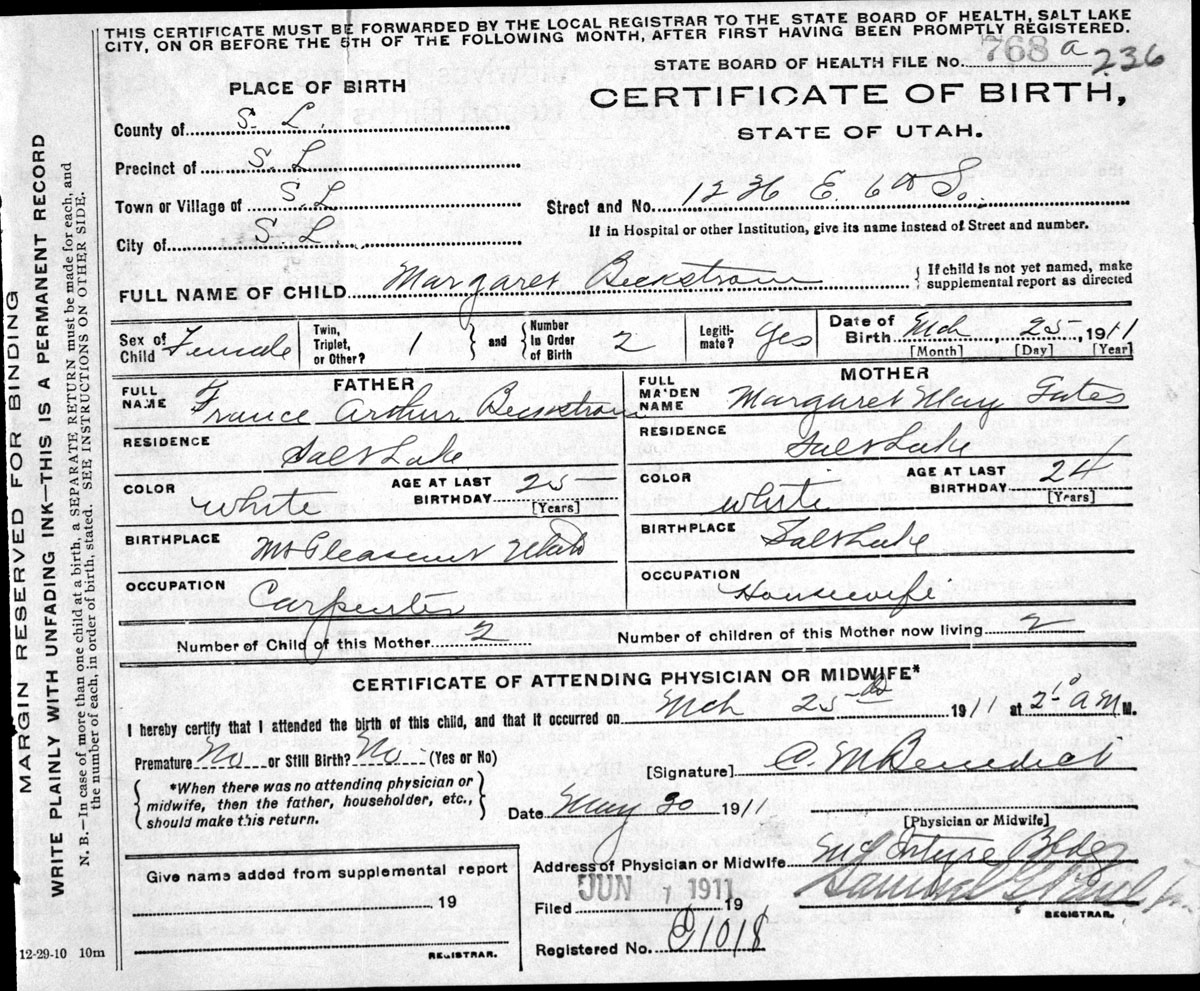 THIS CERTIFICATE MUST BE FORWARDED BY THE LOCAL REGISTRAR TO THE STATE BOARD OF HEALTH, SALT LAKE
CITY, ON OR BEFORE THE 5TH OF THE FOLLOWING MONTH, AFTER FIRST HAVING BEEN PROMPTLY REGISTERED.
STATE BOARD OF HEALTH FILE No. 768 a 236
PLACE OF BIRTH
CERTIFICATE OF BIRTH,
STATE OF UTAH.
County of S. L.
Precinct of S. L
Town or Village of S. L
Street and No. 1236 E. 6th So.
City of S L.
If in Hospital or other Institution, give its name instead of Street and number.
FULL NAME OF CHILD Margaret Beckstrom
{ If child is not yet named, make
supplemental report as directed
Sex of Child Female
Twin, Triplet, or Other? 1 } and { Number In Order of Birth 2
Legiti-mate? Yes
Date of Birth Mch, 25, 1911
[Month] [Day] [Year]
FATHER
FULL NAME France Arthur Beckstrom
RESIDENCE Salt Lake
COLOR White
AGE AT LAST BIRTHDAY 25
[Years]
BIRTHPLACE Mt Pleasant Utah
OCCUPATION Carpenter
MOTHER
FULL MAIDEN NAME Margaret May Gates
RESIDENCE Salt Lake
COLOR White
AGE AT LAST BIRTHDAY 24
[Years]
BIRTHPLACE Salt Lake
OCCUPATION Housewife
Number of Child of this Mother 2 Number of children of this Mother now living 2
CERTIFICATE OF ATTENDING PHYSICIAN OR MIDWIFE*
I hereby certify that I attended the birth of this child, and that it occurred on Mch 25th 1911 at 2 am M.
Premature No or Still Birth? No (Yes or No)
{ *When there was no attending physician or
midwife, then the father, householder, etc.,
should make this return. }
[Signature] C. M Benedict
Date May 30 1911
[Physician or Midwife]
Address of Physician or Midwife McIntyre Bldg
Give name added from supplemental report
19
REGISTRAR.
Filed JUN 1 1911 19
Samuel G Paul Jr.
REGISTRAR.
Registered No. 1018
12-29-10 10m
MARGIN RESERVED FOR BINDING
WRITE PLAINLY WITH UNFADING INK—THIS IS A PERMANENT RECORD
N. B.—In case of more than one child at a birth, a SEPARATE RETURN must be made for each, and
the number of each, in order of birth, stated. SEE INSTRUCTIONS ON OTHER SIDE.